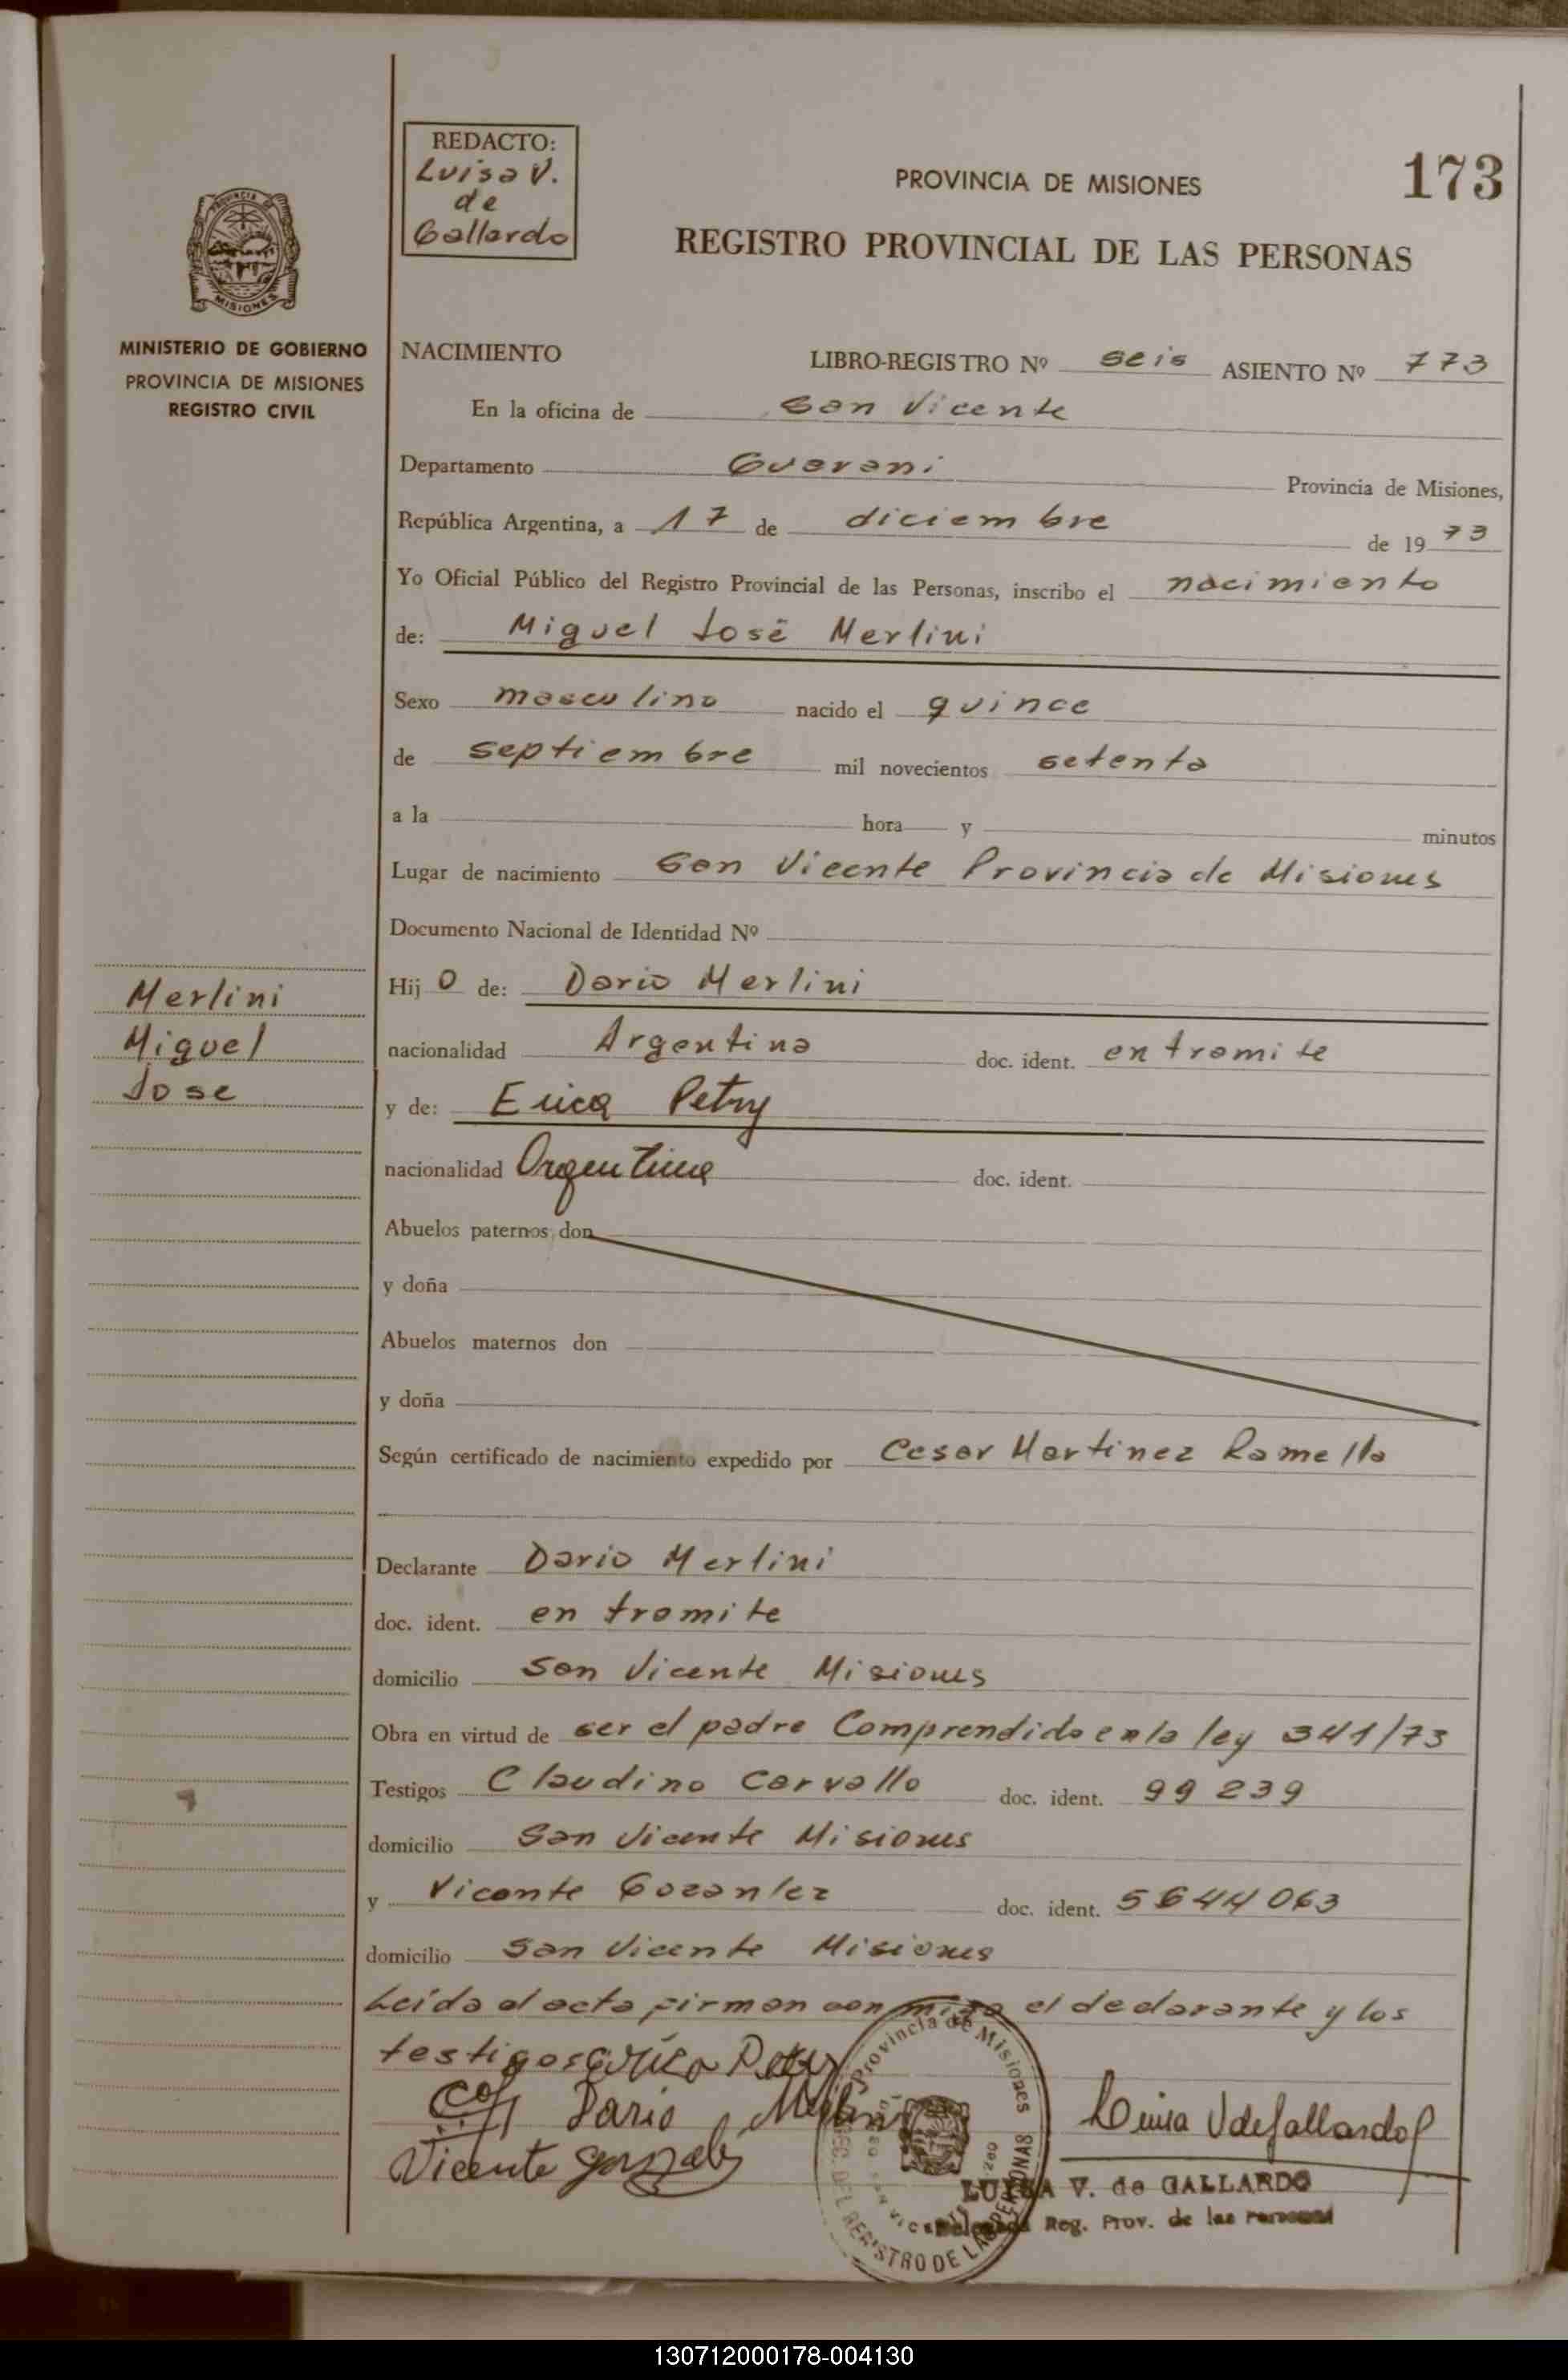 REDACTO:
Luisa V.
de
Gallardo
PROVINCIA DE MISIONES
173
REGISTRO PROVINCIAL DE LAS PERSONAS
MISIONES
MINISTERIO DE GOBIERNO
PROVINCIA DE MISIONES
REGISTRO CIVIL
NACIMIENTO LIBRO-REGISTRO Nº seis ASIENTO Nº 773
En la oficina de San Vicente
Departamento Guarani Provincia de Misiones,
República Argentina, a 17 de diciembre de 1973
Yo Oficial Público del Registro Provincial de las Personas, inscribo el nacimiento
de: Miguel José Merlini
Sexo masculino nacido el quince
de septiembre mil novecientos setenta
a la hora y minutos
Lugar de nacimiento San Vicente Provincia de Misiones
Documento Nacional de Identidad Nº
Hijo de: Dario Merlini
nacionalidad Argentina doc. ident. en tramite
y de: Erica Petry
nacionalidad Argentina doc. ident.
Merlini
Miguel
Jose
Abuelos paternos don
y doña
Abuelos maternos don
y doña
Según certificado de nacimiento expedido por Cesar Martinez Ramella
Declarante Dario Merlini
doc. ident. en tramite
domicilio San Vicente Misiones
Obra en virtud de ser el padre Comprendido en la ley 341/73
Testigos Claudino Carvallo doc. ident. 99239
domicilio San Vicente Misiones
y Vicente Gozanlez doc. ident. 5644063
domicilio San Vicente Misiones
Leida el acta firman con migo el declarante y los
testigos Erica Petry
Dario Merlini
Vicente Gonzalez
Luisa V de Gallardo
LUISA V. de GALLARDO
Delegada Reg. Prov. de las Personas
Provincia de Misiones
DEL REGISTRO DE LAS PERSONAS
130712000178-004130